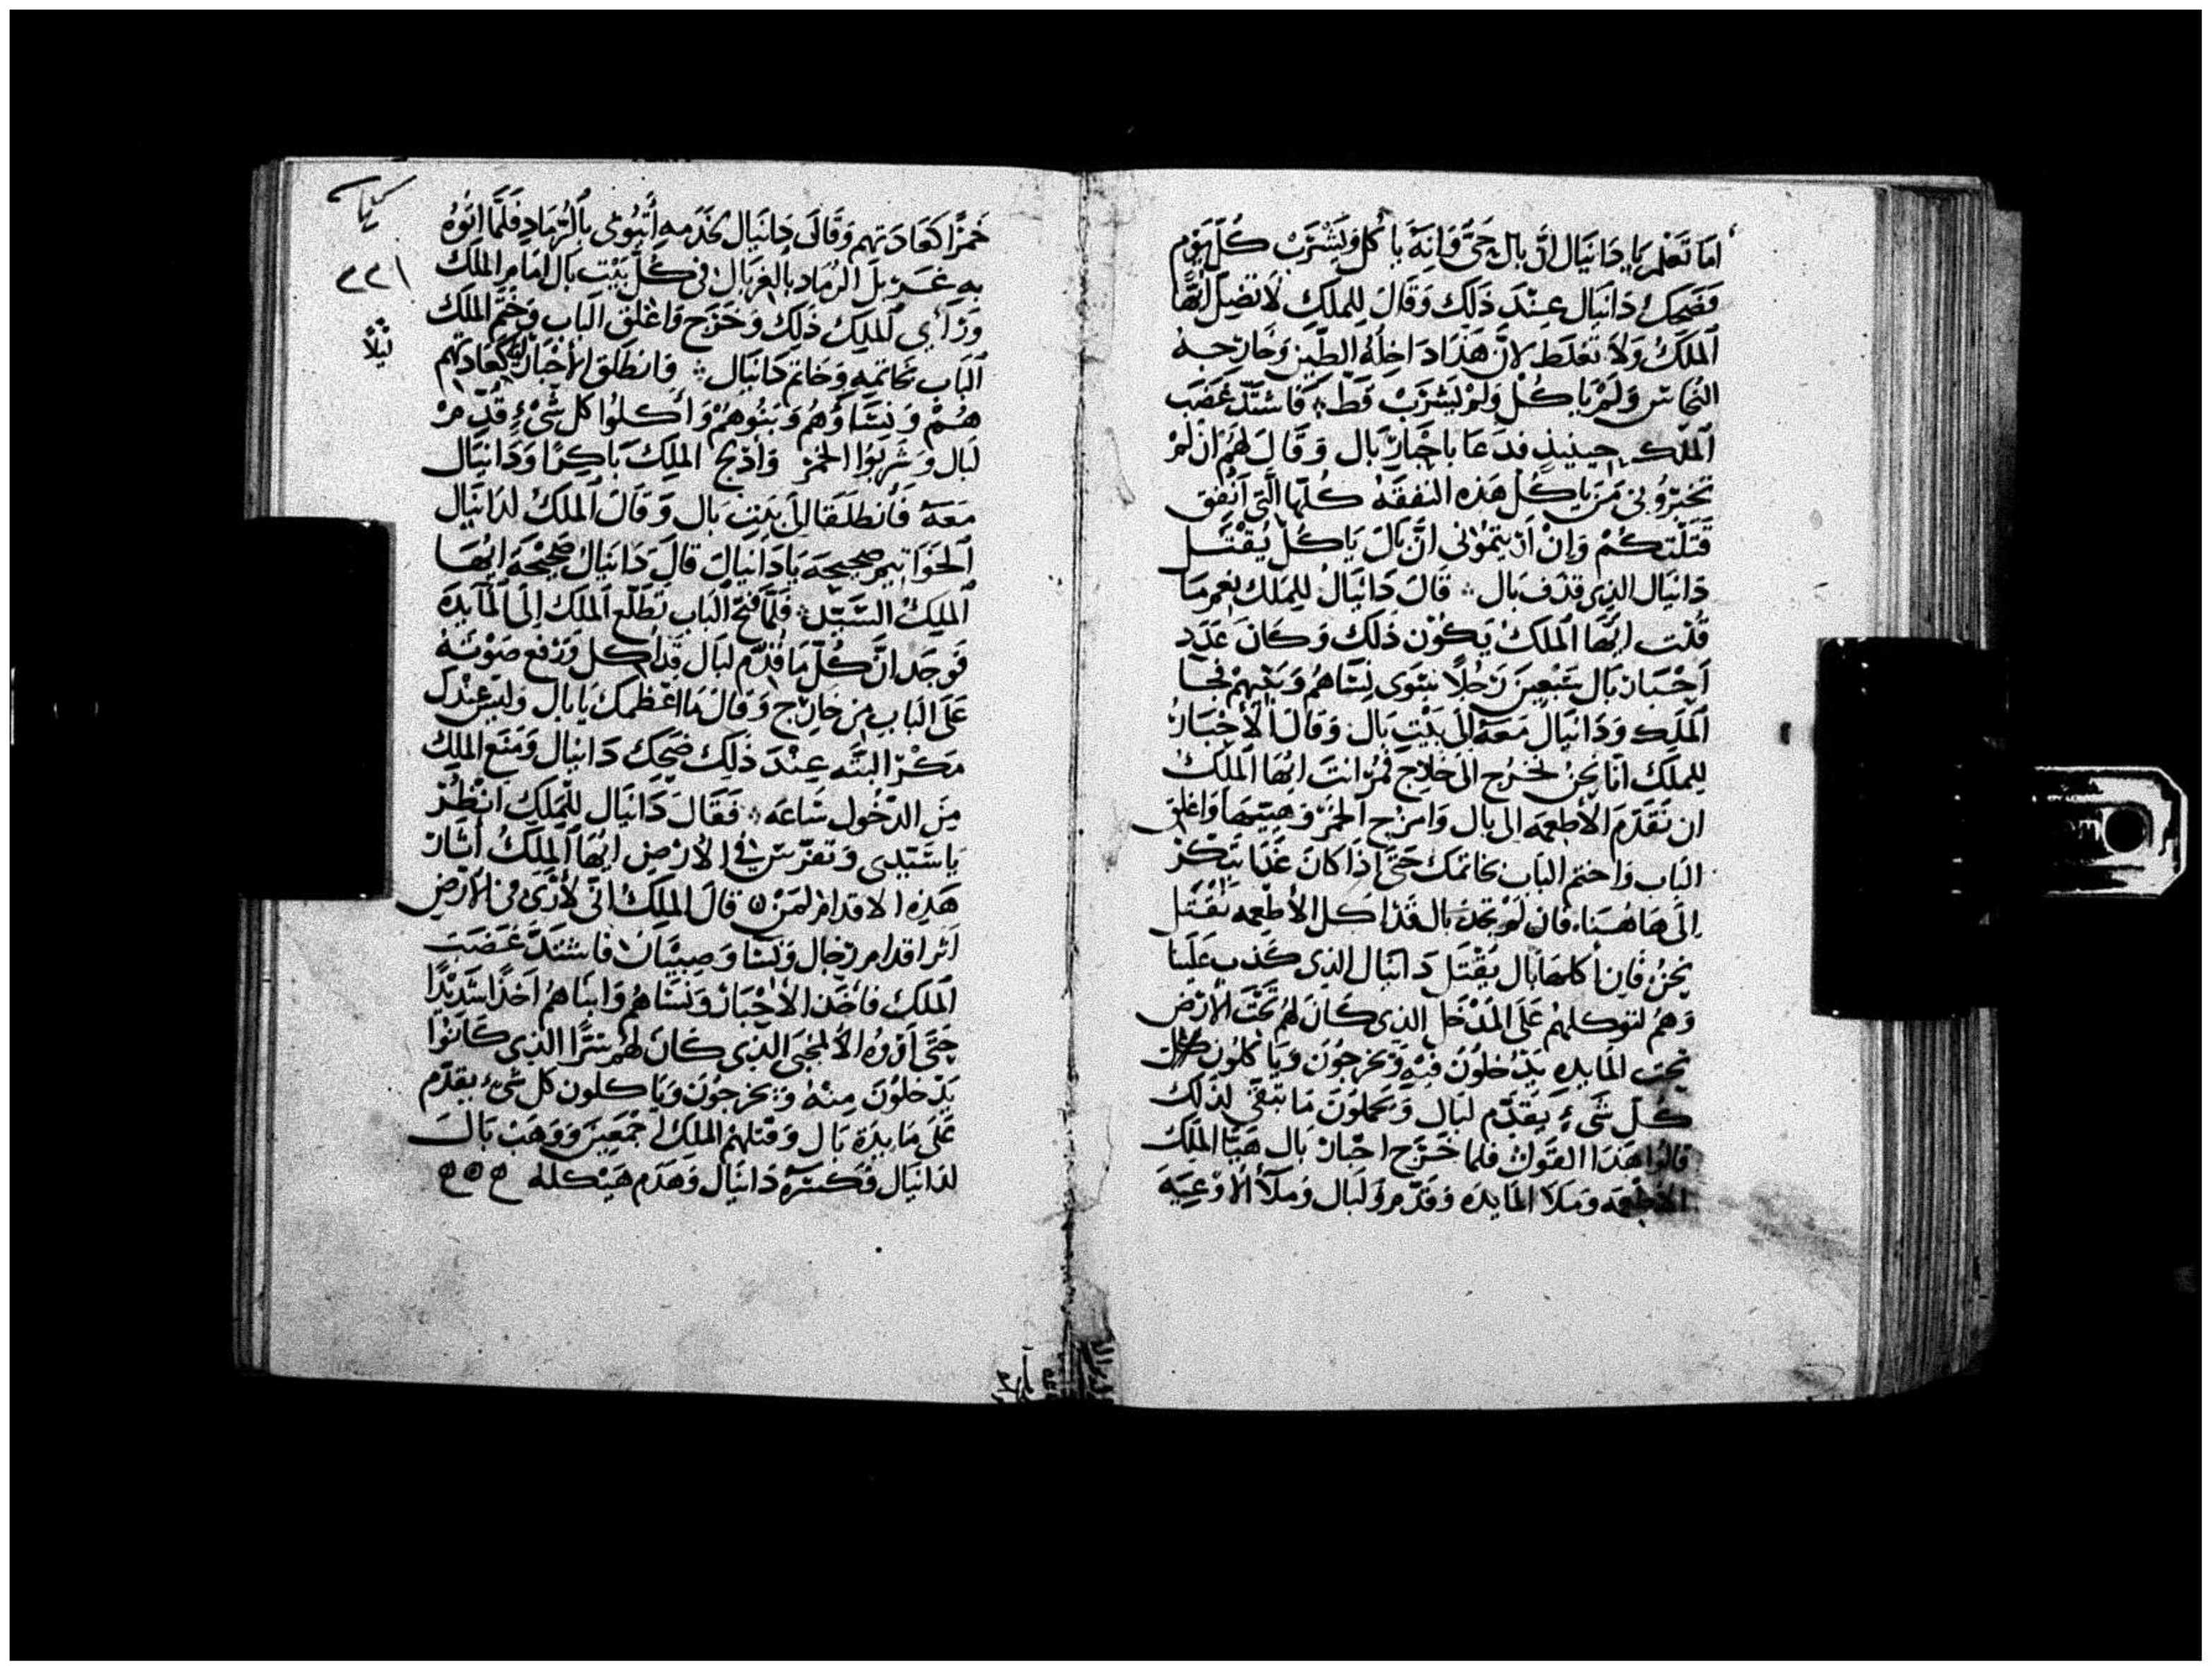 اما تَعْلم يا دَانيَال انَّ بال حَىَّ وَانِهَ ياكل وَيَشْرَبْ كُلّ يَوْم
فَضَحِكَ دَانيَال عِنْدَ ذَلِك وَقَالَ لِلملكِ لا تضِلّ ايُّهَا
الملكُ وَلا تغلَط لانَّ هَذَا دَاخِلُهُ الطّين وَخَارِجه
النُحَاس وَلَمْ يَاكُلْ وَلمْ يَشْرَبْ قَط فَاشتَدّ غَضَب
الملك حينيذٍ فدَعَا باحْبَارْ بَال وَقَالَ لهُم ان لَمْ
تخبرُونى مَن يَاكُلْ هَذه النفقَهُ كلهَا الَّتى انفِق
قَتَلْتكُمْ وَإنْ أرَيتمُوْنى انَّ بَالَ يَاكُلْ يُقْتَل
دَانيَال الذِى قذف بَال قَالَ دَانيَالُ لِلمَلك نِعم مَا
قُلْت ايُّهَا الملكُ يَكوْن ذَلك وَكَانَ عَدَد
احْبَار بَال سَبْعِينَ رَجُلاً سِوَى نِسَاهُم وَبَنيهمْ فجَا
المَلِك وَدَانيَال مَعَه الَى بَيْتِ بَال وَقَالَ الأَحْبَارُ
للملك انا نحنُ نخرُج الى خَارج فمُرْ انتَ ايُهَا الملكُ
ان نقَدّمَ الاطعِمه الى بَال وَامزج الخمْر وَهيّيهَا وَاغلِق
البَاب وَاختم البَاب بخاتمك حَتَّى اذَا كانَ غَدَا تبَكرْ
الَى هَاهُنَا فان لم تجدْ بَال قدْ اكل الأطعِمه نُقْتَل
نحْنُ فَان اكلهَا بَال يُقْتَل دَانيَال الذِى كَذب عَلَينا
وَهُم لتوكلهمْ عَلَى المَدْخَل الذِى كَانَ لهُم تَحْتَ الأرْض
تحت المَايده يَدْخلُونَ فيْهِ وَيخرجُوْنَ وَيَاكلُون
كُلّ شَىْءٍ يُقَدّم لبَال وَيحملوْنَ مَا تبَقّى لذَلك
قالوا هَذَا القَوْلْ فلما خَرَج احْبَارْ بَال هَيَّا الملك
الاطعمه وَمَلا المَايدَه وَقدّم لبَال وَمَلأ الأوْعِيَه
كتاب
٢٢١
ليلاً
خَمْرًا كعَادَتهم وَقَالَ دَانيَال لخدَمهِ أتُبُوْنى بالرّمَادِ فلَمَّا اتوْهُ
بهِ غَرْبلَ الرَمَاد بالغربَال فى كُلّ بَيْت بَال امَام المَلك
وَرَأى الملِك ذَلك وَخَرَج وَاغْلق البَاب وَخَتَم الملك
البَاب بخاتمهِ وَخاتم دَانيَال فانطَلَق الأحْبَار كعَادَتهم
هُمْ وَنسَاؤُهُم وَبَنُوهُمْ وَأكلُوا كل شَىْءٍ قُدّم
لبَال وَشرِبُوا الخمْر وَأدْلج الملِكُ بَاكِرًا وَدَانيَال
مَعَهُ فانطَلقَا الَى بَيْتِ بَال وَقَالَ الملكُ لدَانيَال
الخَوَاتِيم صَحِيحه يَا دَانيَالَ قَالَ دَانيَال صَحِيْحَه ايُّهَا
الملِكُ السَّيّد فَلَمَّا فتحَ البَاب تطَلّع الملك إلَى المَايدَه
فوَجَد انَّ كُلّ مَا قُدّم لبَال قد أكل وَرَفع صَوْتهُ
عَلَى البَاب مِن خَارج وَقَالَ مَا اعظمكَ يَا بَال وَليسَ عِنْدكَ
مَكْرْ البتَه عِنْدَ ذَلِك ضَحِك دَانيَال وَمَنَع الملك
مِنَ الدّخُول سَاعَه فَقَالَ دَانيَال للمَلِك انْظُرْ
يَا سَيّدى وَتفَرّسْ فى الأرْضِ ايُهَا الملِكُ أثَارْ
هَذِه الاقدَام لمَنْ قَالَ الملِكُ انى لأرَى فى الأرْض
اثر اقدَام رجَال وَنسَا وَصِبْيَان فاشتَدَّ غَضَب
الملك فاخَذ الأحْبَارْ وَنسَاهُم وَابنَاهُم اخذًا شدَيْدًا
حَتَّى أرَوْهُ المخبَى الذِى كَانَ لهُم سِرًّا الذِى كَانُوا
يَدْخلوْنَ مِنْهُ وَيخرجُوْنَ وَيَاكلون كل شَىْءٍ يقدّم
عَلَى مَايدَة بَال وَقتلهمْ الملِك اجْمَعِينَ وَوَهَبَ بَال
لدَانيَال فكسَرَهُ دَانيَال وَهَدَم هَيْكله